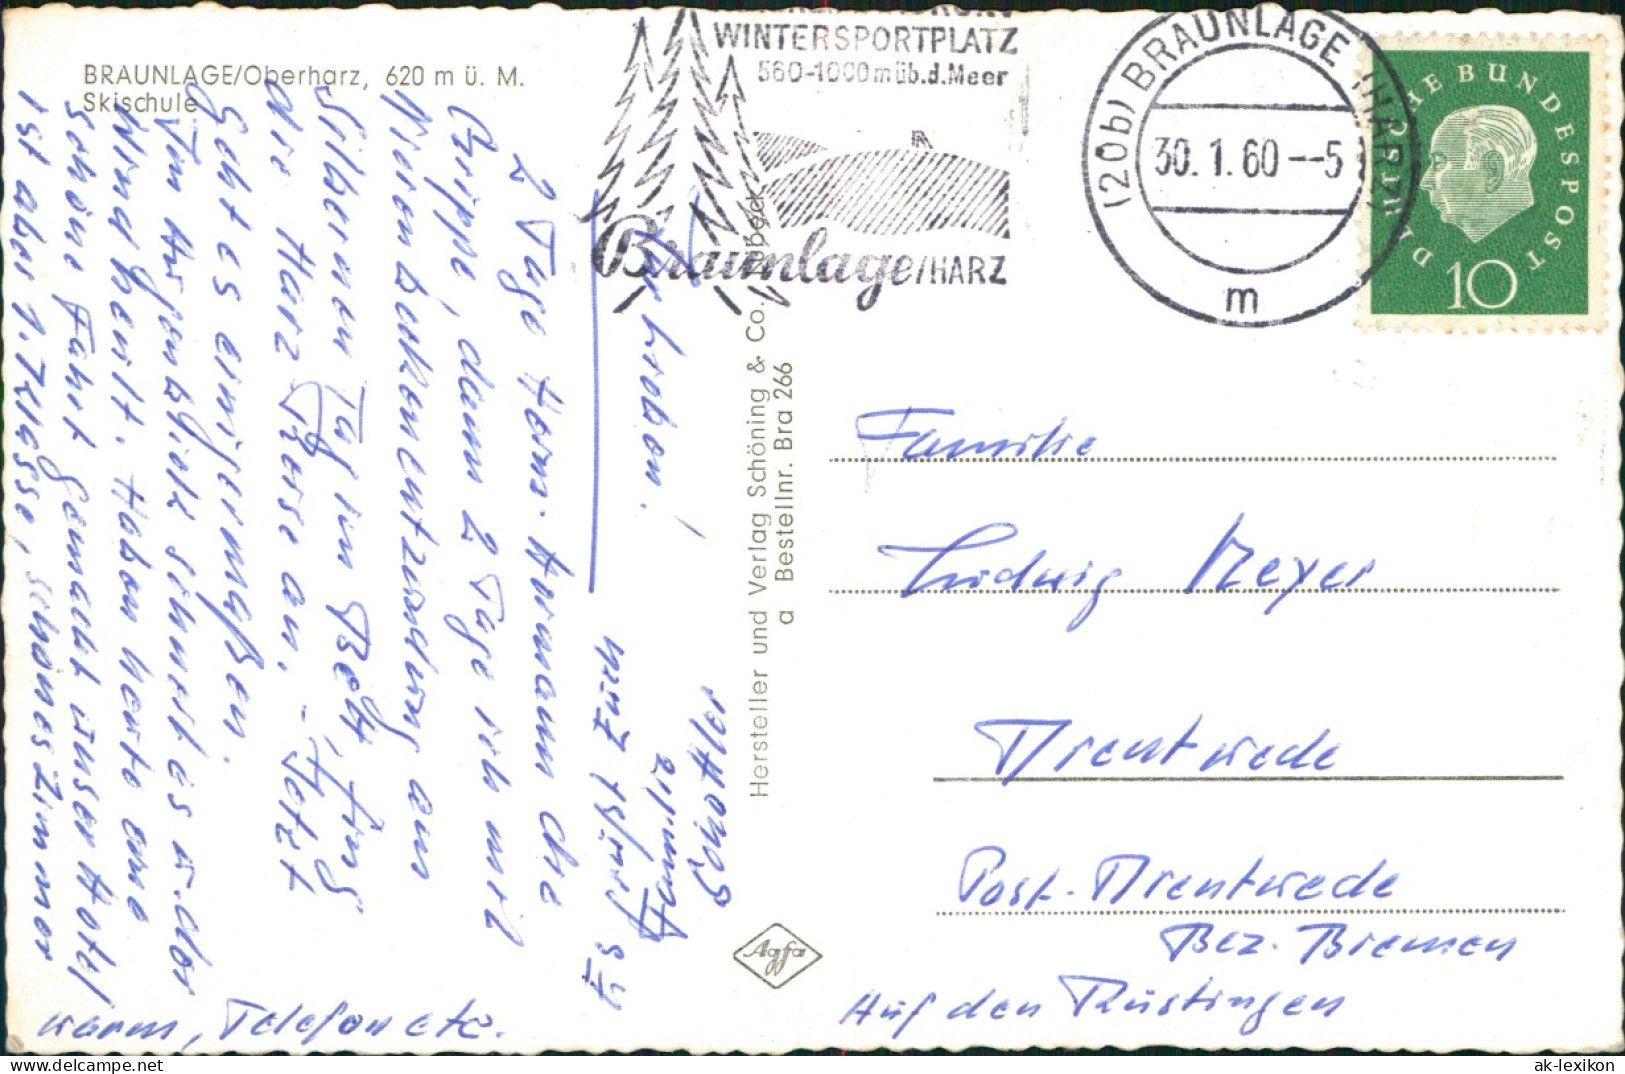 BRAUNLAGE/Oberharz, 620 m ü. M.
Skischule
WINTERSPORTPLATZ
560-1000müb.d.Meer
Braunlage/HARZ
(20b) BRAUNLAGE (HARZ)
30.1.60--5
m
DEUTSCHE BUNDESPOST
10
Ihr Lieben!
2 Tage Herm. Hermann die
Grippe, dann 2 Tage ich mit
Nierenbeckenentzündung am
Silbernen Tag im Bett, fing
die Harz Reise an, - Jetzt
geht es einigermaßen.
Im Augenblick schneit es u. der
Wind heult. Haben heute eine
schöne Fahrt gemacht unser Hotel
ist aber 1. Klasse, schönes Zimmer
warm, Telefon etc.
Es grüßt Euch
Hermann
Hersteller und Verlag Schöning & Co., Lübeck
a Bestellnr. Bra 266
Agfa
Familie
Ludwig Meyer
Drentwede
Post. Drentwede
Bez. Bremen
Auf den Rüstingen
© oldthing
ak-lexikon